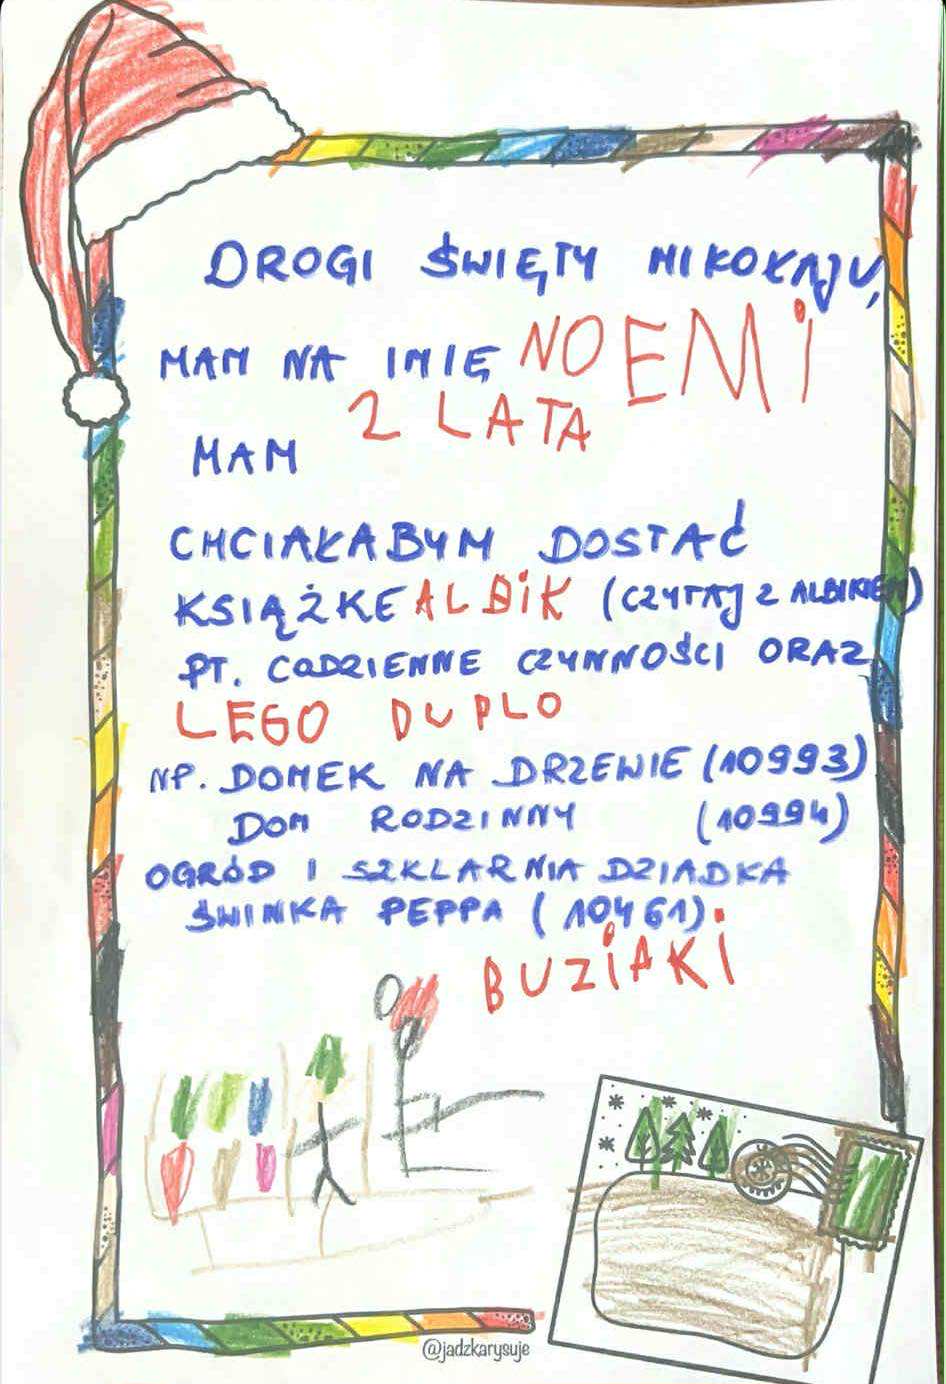 DROGI ŚWIĘTY MIKOŁAJU,
MAM NA IMIĘ NOEMi
MAM 2 LATA
CHCIAŁABYM DOSTAĆ
KSIĄŻKE ALBiK (CZYTAJ Z ALBIKIEM)
PT. CODZIENNE CZYNNOŚCI ORAZ
LEGO DUPLO
NP. DOMEK NA DRZEWIE (10993)
DOM RODZINNY (10994)
OGRÓD I SZKLARNIA DZIADKA
ŚWINKA PEPPA (10461).
BUZiAKi
@jadzkarysuje